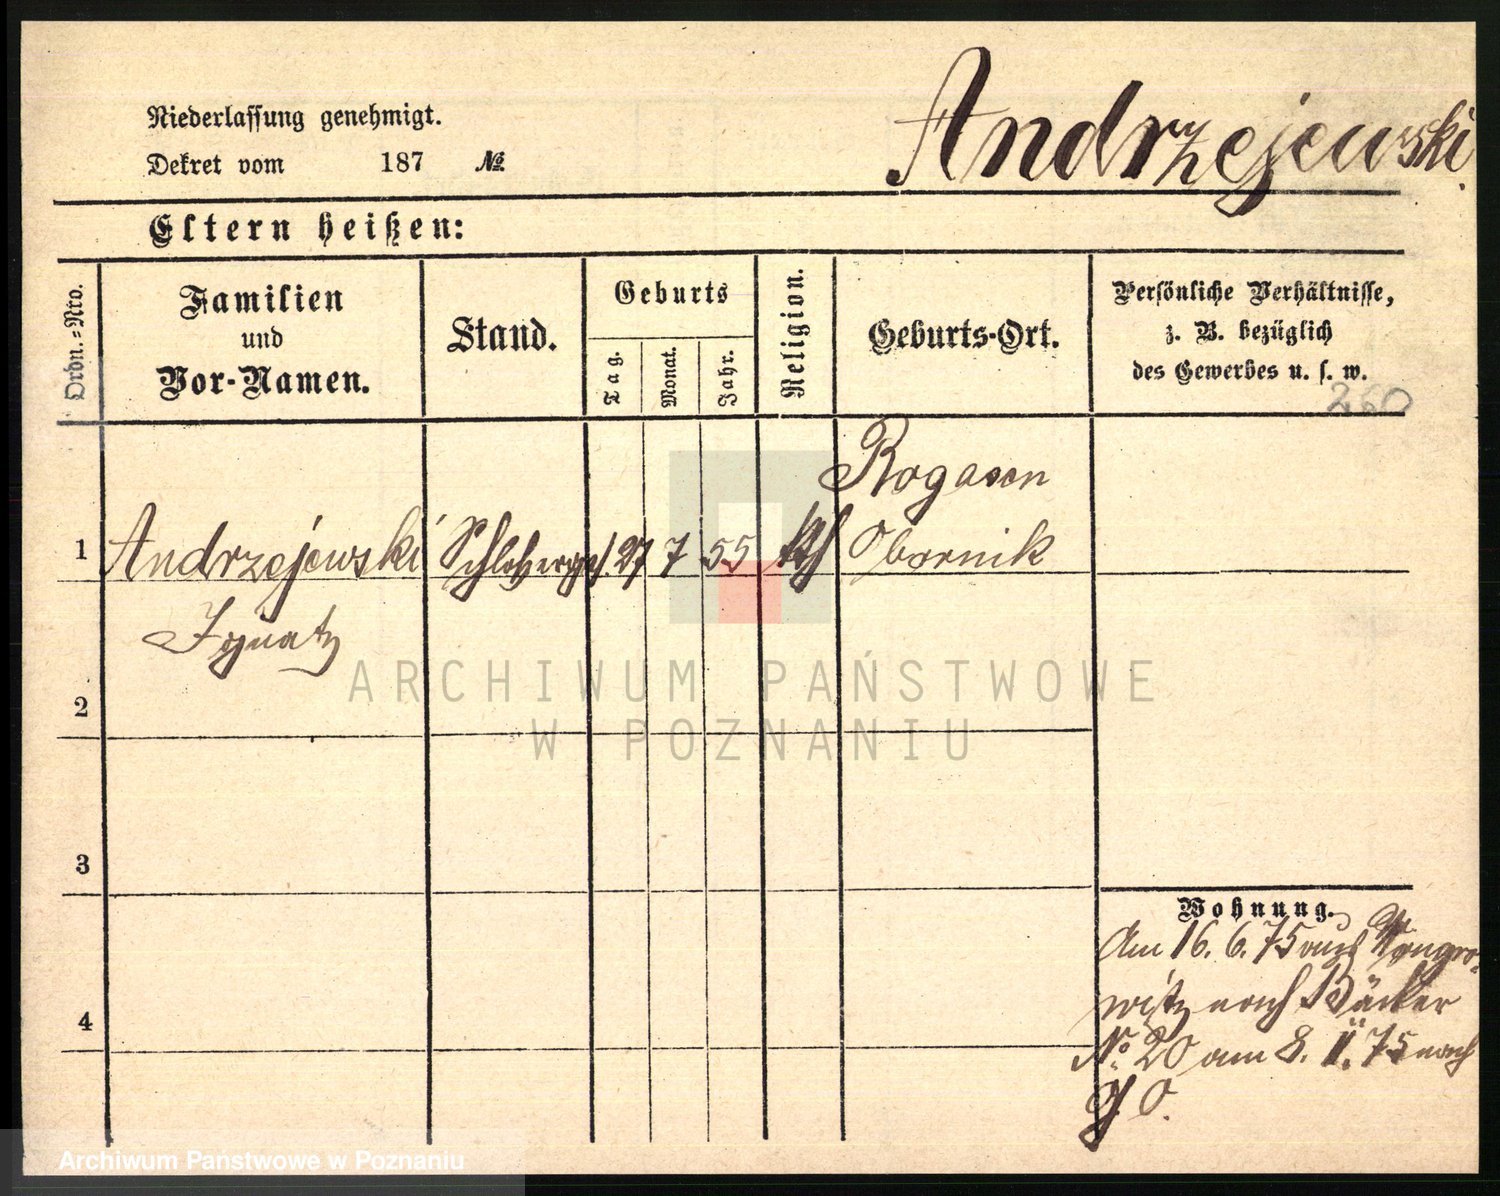 Andrzejewski.
Niederlassung genehmigt.
Dekret vom 187 №
Eltern heißen:
Ordn.-Nro.
Familien
und
Vor-Namen.
Stand.
Geburts
Tag.
Monat.
Jahr.
Religion.
Geburts-Ort.
Persönliche Verhältnisse,
z. B. bezüglich
des Gewerbes u. s. w.
260
Rogasen
1 Andrzejewski Schlosserges. 27 7 55 kth Obornik
Ignatz
2
3
4
Wohnung.
Am 16. 6. 75 aus Wongro-
witz nach Bäcker
No. 20 am 8. 11. 75 nach
ARCHIWUM PAŃSTWOWE
W POZNANIU
Archiwum Państwowe w Poznaniu